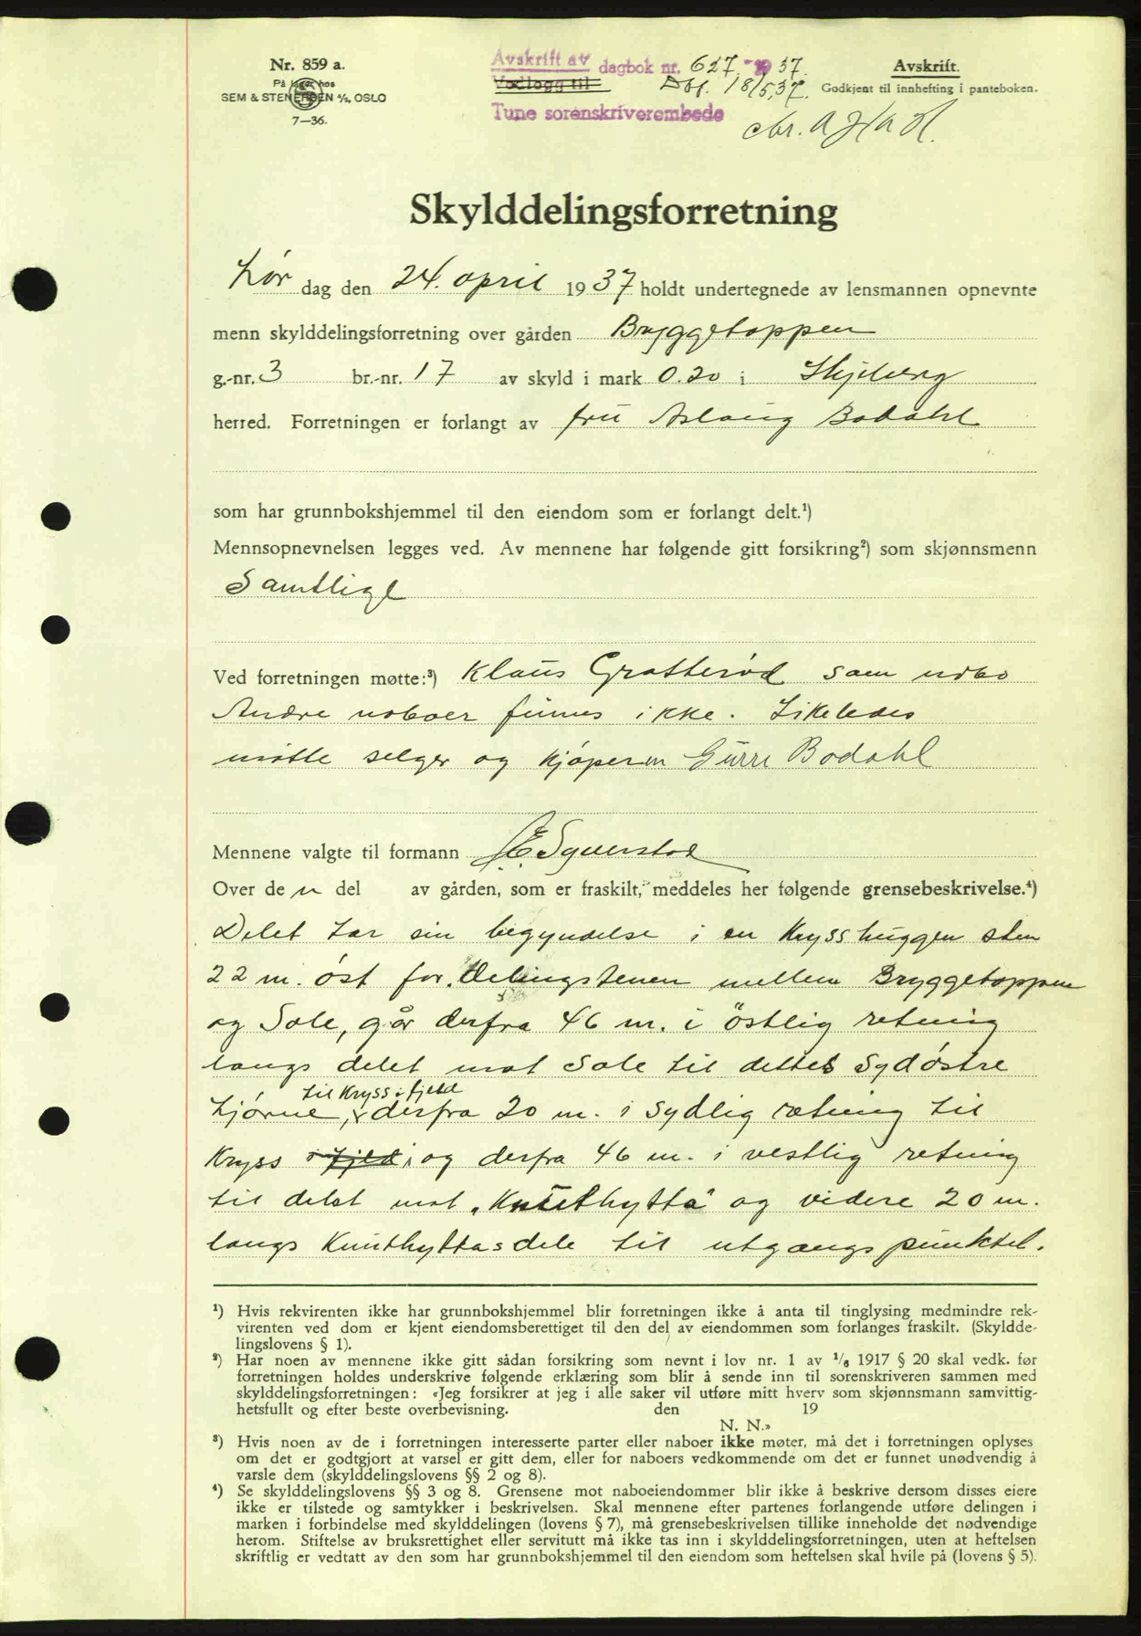 Nr. 859 a.
På lager hos
SEM & STENERSEN A/S, OSLO
7—36.
Avskrift av dagbok nr. 627, - 1937.
Vedlegg til Dbf. 18/5, 37.
Tune sorenskriverembede
Avskrift.
Godkjent til innhefting i panteboken.
Skylddelingsforretning
Lør dag den 24. april 1937 holdt undertegnede av lensmannen opnevnte
menn skylddelingsforretning over gården Bryggetoppen
g.-nr. 3 br.-nr. 17 av skyld i mark 0.20 i Skjeberg
herred. Forretningen er forlangt av fru Aslaug Bodahl
som har grunnbokshjemmel til den eiendom som er forlangt delt.¹)
Mennsopnevnelsen legges ved. Av mennene har følgende gitt forsikring²) som skjønnsmenn
Samtlige
Ved forretningen møtte:³) Klaus Gratterød som nabo
Andre naboer finnes ikke. Likeledes
møtte selger og kjøperen Gurri Bodahl
Mennene valgte til formann
Over den del av gården, som er fraskilt, meddeles her følgende grensebeskrivelse.⁴)
Delet tar sin begyndelse i en Krysshuggen sten
22 m. øst for delingstenen mellem Bryggetoppen
og Sole, går derfra 46 m. i østlig retning
langs delet mot Sole til dettes sydøstre
til Kryss i fjeld
hjørne, derfra 20 m. i sydlig retning til
Kryss i fjeld, og derfra 46 m. i vestlig retning
til delet mot „Knuthytta" og videre 20 m.
langs Knuthyttas dele til utgangspunktet.
¹) Hvis rekvirenten ikke har grunnbokshjemmel blir forretningen ikke å anta til tinglysing medmindre rek-
virenten ved dom er kjent eiendomsberettiget til den del av eiendommen som forlanges fraskilt. (Skyldde-
lingslovens § 1).
²) Har noen av mennene ikke gitt sådan forsikring som nevnt i lov nr. 1 av 1/6 1917 § 20 skal vedk. før
forretningen holdes underskrive følgende erklæring som blir å sende inn til sorenskriveren sammen med
skylddelingsforretningen: «Jeg forsikrer at jeg i alle saker vil utføre mitt hverv som skjønnsmann samvittig-
hetsfullt og efter beste overbevisning. den 19
N. N.»
³) Hvis noen av de i forretningen interesserte parter eller naboer ikke møter, må det i forretningen oplyses
om det er godtgjort at varsel er gitt dem, eller for naboers vedkommende om det er funnet unødvendig å
varsle dem (skylddelingslovens §§ 2 og 8).
⁴) Se skylddelingslovens §§ 3 og 8. Grensene mot naboeiendommer blir ikke å beskrive dersom disses eiere
ikke er tilstede og samtykker i beskrivelsen. Skal mennene efter partenes forlangende utføre delingen i
marken i forbindelse med skylddelingen (lovens § 7), må grensebeskrivelsen tillike inneholde det nødvendige
herom. Stiftelse av bruksrettighet eller servitutt må ikke tas inn i skylddelingsforretningen, uten at heftelsen
skriftlig er vedtatt av den som har grunnbokshjemmel til den eiendom som heftelsen skal hvile på (lovens § 5).